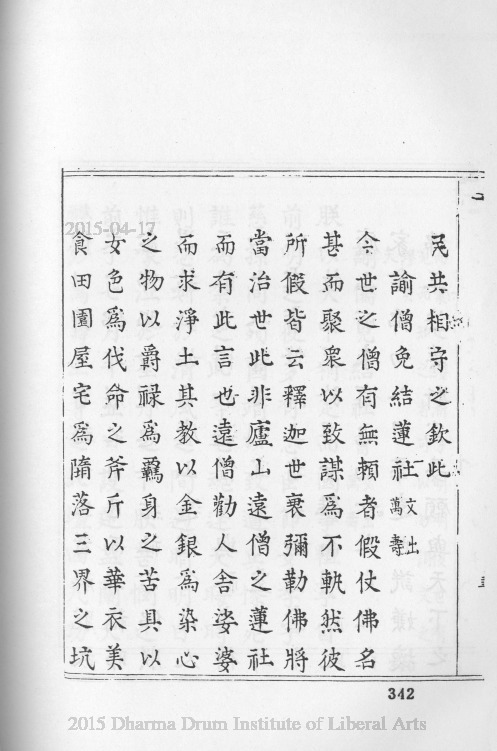 民共相守之欽此
諭僧免結蓮社文出萬壽
今世之僧有無賴者假仗佛名
甚而聚衆以致謀為不軌然彼
所假皆云釋迦世衰彌勒佛將
當治世此非廬山遠僧之蓮社
而有此言也遠僧勸人舍娑婆
而求淨土其教以金銀為染心
之物以爵祿為羈身之苦具以
女色為伐命之斧斤以華衣美
食田園屋宅為隋落三界之坑
342
2015-04-17
2015 Dharma Drum Institute of Liberal Arts